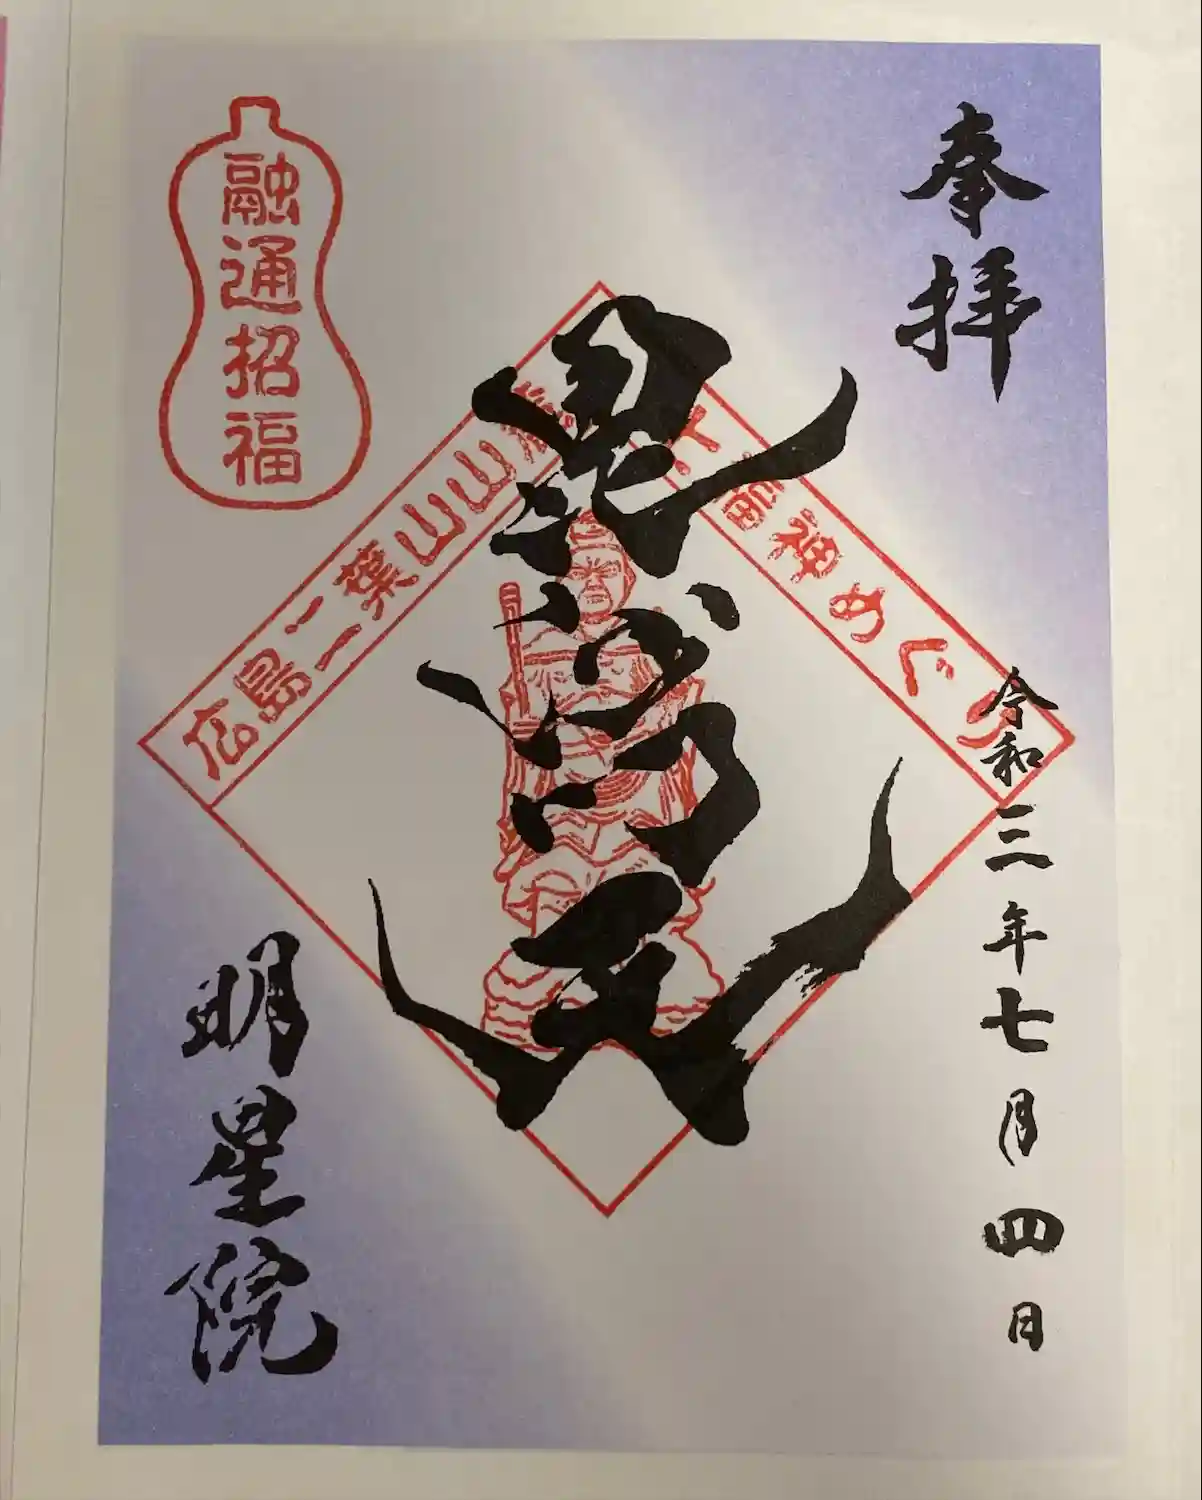 奉拝
令和三年七月四日
毘沙門天
広島二葉山山麓
七福神めぐり
融通招福
明星院